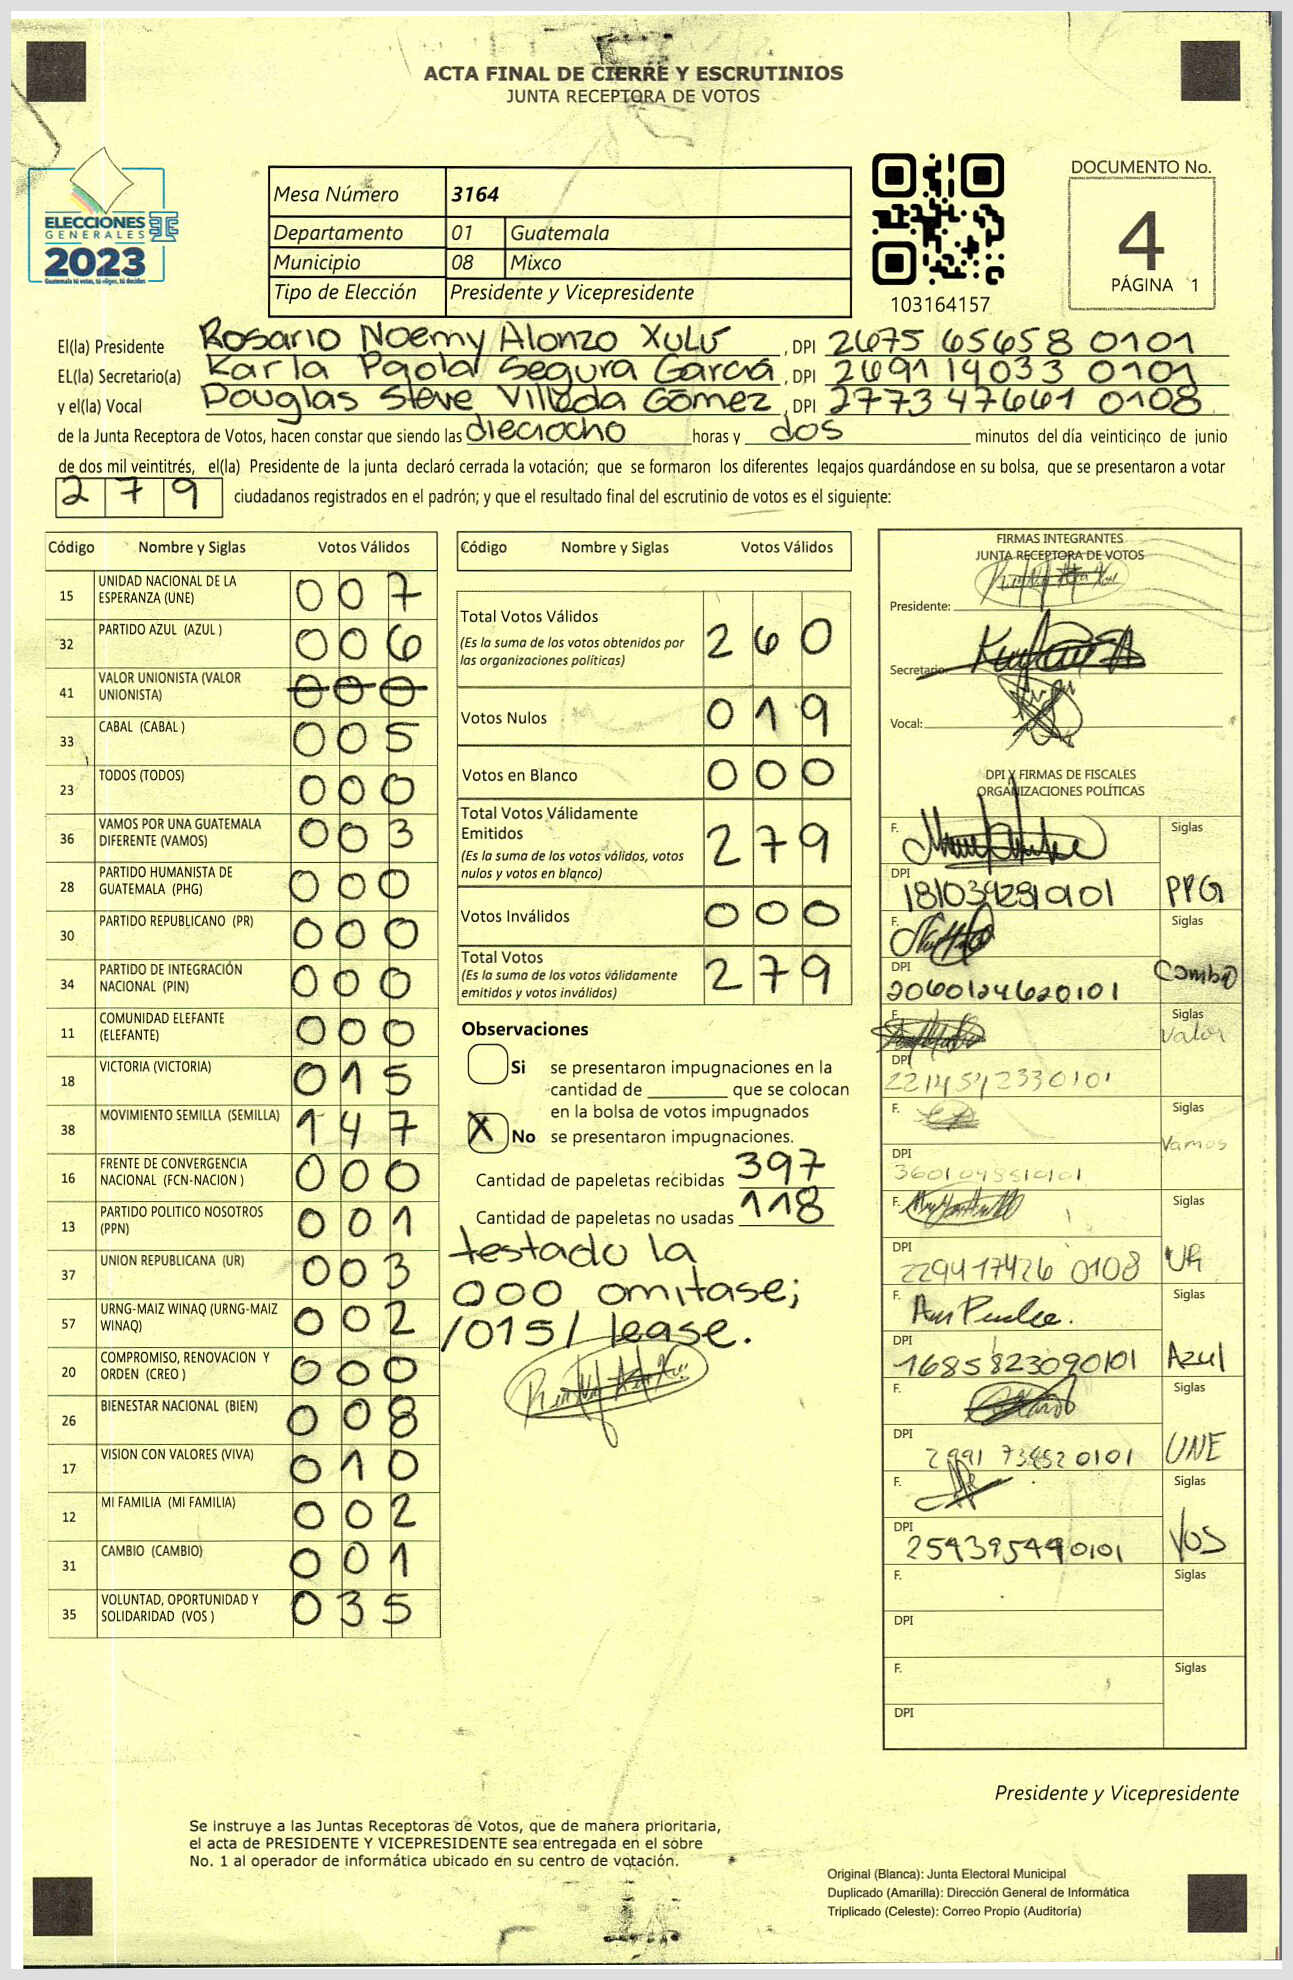 ACTA FINAL DE CIERRE Y ESCRUTINIOS
JUNTA RECEPTORA DE VOTOS
ELECCIONES
GENERALES
2023
Guatemala tú votas, tú eliges, tú decides
Mesa Número 3164
Departamento 01 Guatemala
Municipio 08 Mixco
Tipo de Elección Presidente y Vicepresidente
103164157
DOCUMENTO No.
4
PÁGINA 1
El(la) Presidente Rosario Noemy Alonzo Xulú, DPI 2675 65658 0101
EL(la) Secretario(a) Karla Paola Segura García, DPI 2691 19033 0101
y el(la) Vocal Douglas Steve Villeda Gómez, DPI 2773 47661 0108
de la Junta Receptora de Votos, hacen constar que siendo las dieciocho horas y dos minutos del día veinticinco de junio
de dos mil veintitrés, el(la) Presidente de la junta declaró cerrada la votación; que se formaron los diferentes legajos guardándose en su bolsa, que se presentaron a votar
279 ciudadanos registrados en el padrón; y que el resultado final del escrutinio de votos es el siguiente:
Código Nombre y Siglas Votos Válidos
15 UNIDAD NACIONAL DE LA ESPERANZA (UNE) 007
32 PARTIDO AZUL (AZUL ) 006
41 VALOR UNIONISTA (VALOR UNIONISTA) 000
33 CABAL (CABAL ) 005
23 TODOS (TODOS) 000
36 VAMOS POR UNA GUATEMALA DIFERENTE (VAMOS) 003
28 PARTIDO HUMANISTA DE GUATEMALA (PHG) 000
30 PARTIDO REPUBLICANO (PR) 000
34 PARTIDO DE INTEGRACIÓN NACIONAL (PIN) 000
11 COMUNIDAD ELEFANTE (ELEFANTE) 000
18 VICTORIA (VICTORIA) 015
38 MOVIMIENTO SEMILLA (SEMILLA) 147
16 FRENTE DE CONVERGENCIA NACIONAL (FCN-NACION ) 000
13 PARTIDO POLITICO NOSOTROS (PPN) 001
37 UNION REPUBLICANA (UR) 003
57 URNG-MAIZ WINAQ (URNG-MAIZ WINAQ) 002
20 COMPROMISO, RENOVACION Y ORDEN (CREO ) 000
26 BIENESTAR NACIONAL (BIEN) 008
17 VISION CON VALORES (VIVA) 010
12 MI FAMILIA (MI FAMILIA) 002
31 CAMBIO (CAMBIO) 001
35 VOLUNTAD, OPORTUNIDAD Y SOLIDARIDAD (VOS ) 035
Código Nombre y Siglas Votos Válidos
Total Votos Válidos 260
(Es la suma de los votos obtenidos por
las organizaciones políticas)
Votos Nulos 019
Votos en Blanco 000
Total Votos Válidamente
Emitidos 279
(Es la suma de los votos válidos, votos
nulos y votos en blanco)
Votos Inválidos 000
Total Votos 279
(Es la suma de los votos válidamente
emitidos y votos inválidos)
Observaciones
Si se presentaron impugnaciones en la
cantidad de ________ que se colocan
en la bolsa de votos impugnados
X No se presentaron impugnaciones.
Cantidad de papeletas recibidas 397
Cantidad de papeletas no usadas 118
testado la
000 omitase;
/015/ lease.
FIRMAS INTEGRANTES
JUNTA RECEPTORA DE VOTOS
Presidente:
Secretario:
Vocal:
DPI Y FIRMAS DE FISCALES
ORGANIZACIONES POLÍTICAS
F. Siglas
DPI PPG
F. Siglas
DPI 2060124620101 Cambio
F. Siglas
DPI Valor
F. Siglas
DPI Vamos
F. Siglas
DPI 229417426 0108 UR
F. Siglas
DPI 1685823090101 Azul
F. Siglas
DPI UNE
F. Siglas
DPI 2543954490101 VOS
F. Siglas
DPI
F. Siglas
DPI
Presidente y Vicepresidente
Se instruye a las Juntas Receptoras de Votos, que de manera prioritaria,
el acta de PRESIDENTE Y VICEPRESIDENTE sea entregada en el sobre
No. 1 al operador de informática ubicado en su centro de votación.
Original (Blanca): Junta Electoral Municipal
Duplicado (Amarilla): Dirección General de Informática
Triplicado (Celeste): Correo Propio (Auditoría)